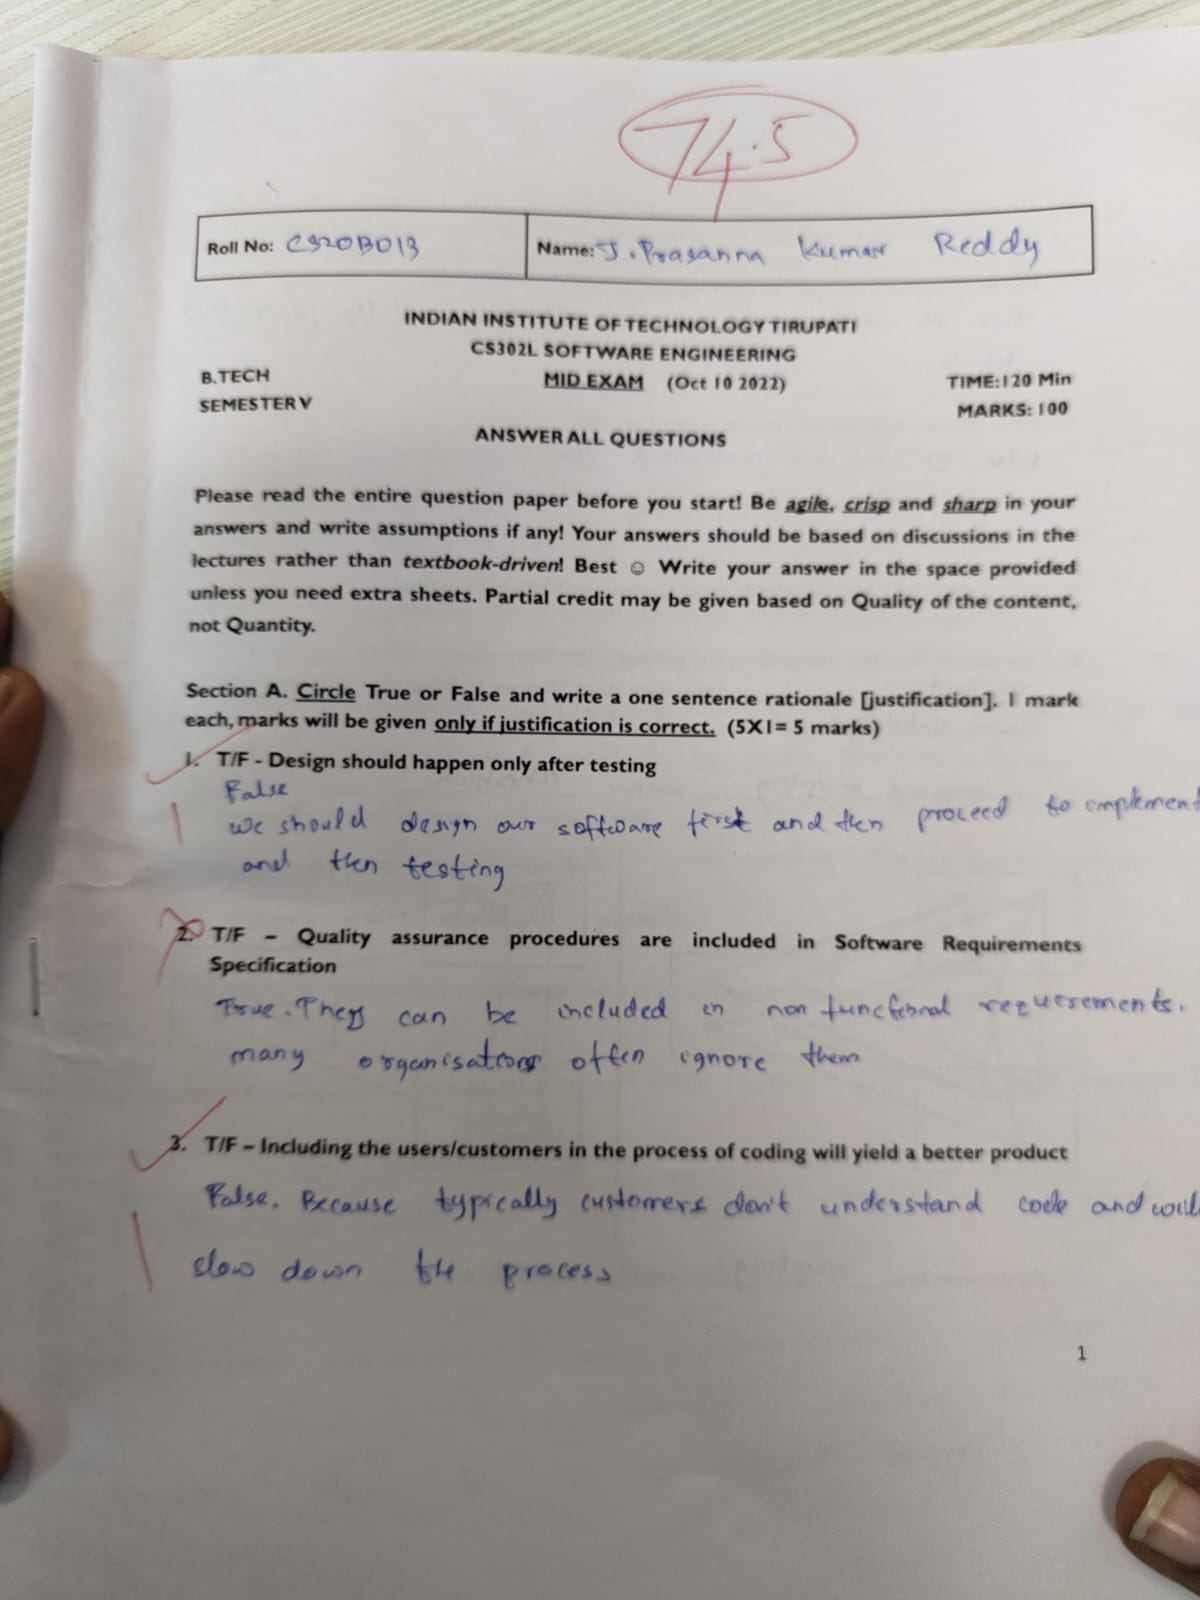 74.5
Roll No: CS20B013 Name: J. Prasanna Kumar Reddy
INDIAN INSTITUTE OF TECHNOLOGY TIRUPATI
CS302L SOFTWARE ENGINEERING
B.TECH MID EXAM (Oct 10 2022) TIME:120 Min
SEMESTER V MARKS: 100
ANSWER ALL QUESTIONS
Please read the entire question paper before you start! Be agile, crisp and sharp in your
answers and write assumptions if any! Your answers should be based on discussions in the
lectures rather than textbook-driven! Best ☺ Write your answer in the space provided
unless you need extra sheets. Partial credit may be given based on Quality of the content,
not Quantity.
Section A. Circle True or False and write a one sentence rationale [justification]. 1 mark
each, marks will be given only if justification is correct. (5X1= 5 marks)
1. T/F - Design should happen only after testing
False
1 we should design our software first and then proceed to implement
and then testing
2. T/F – Quality assurance procedures are included in Software Requirements
Specification
True. They can be included in non functional requirements.
many organisations often ignore them
3. T/F – Including the users/customers in the process of coding will yield a better product
False. Because typically customers don't understand code and will
1 slow down the process
1